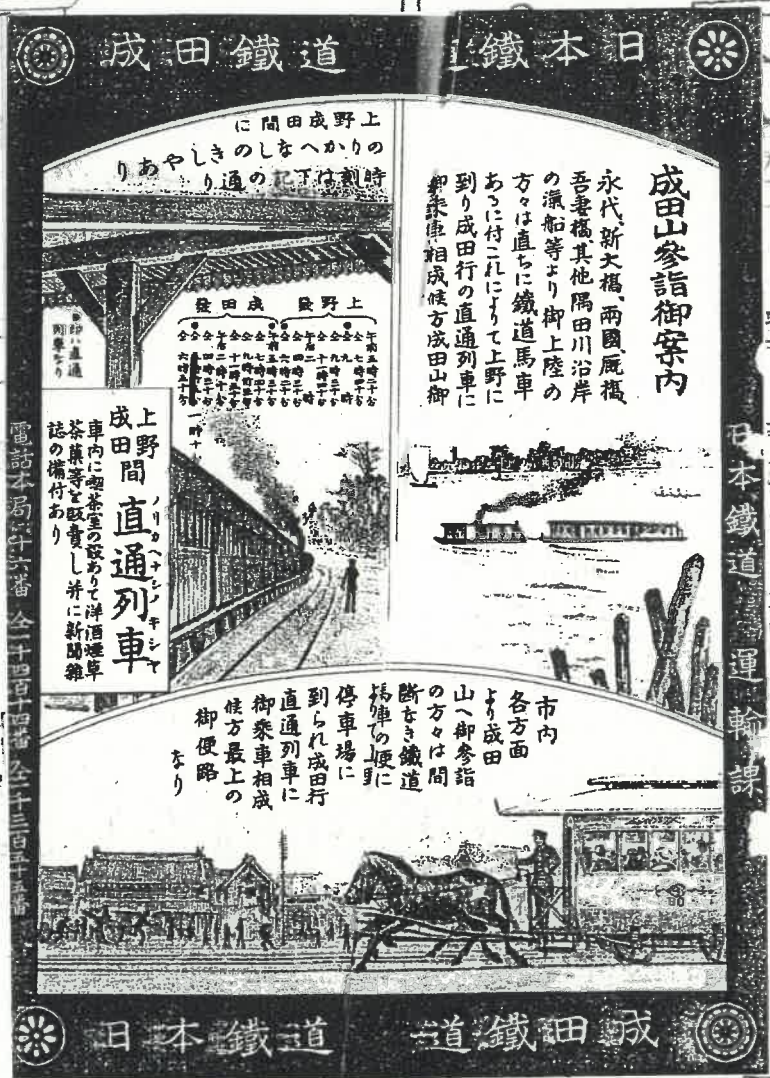 日本鐵道
成田鐵道
成田山參詣御案內
永代、新大橋、兩國、厩橋、
吾妻橋、其他隅田川沿岸
の滊船等より御上陸の
方々は直ちに鐵道馬車
あるに付これによりて上野に
到り成田行の直通列車に
御乘車相成候方成田山御
上野成田間に
のりかへなしのきしやあり
時刻は下記の通り
上野發
午前五時二十分
仝 七時四十分
仝 九時
成田發
●印ハ直通
列車なり
上野
成田間
直通列車
ノリカヘナシノキシヤ
車内に喫茶室の設ありて洋酒煙草
茶菓等を販賣し并に新聞雜
誌の備付あり
市内
各方面
より成田
山へ御參詣
の方々は間
斷なき鐵道
馬車の便に
よりて上野
停車場に
到られ成田行
直通列車に
御乘車相成
候方最上の
御便路
なり
日本鐵道 運輸課
電話本局 六番 仝 千四百十四番 仝 千三百五十五番
日本鐵道
成田鐵道